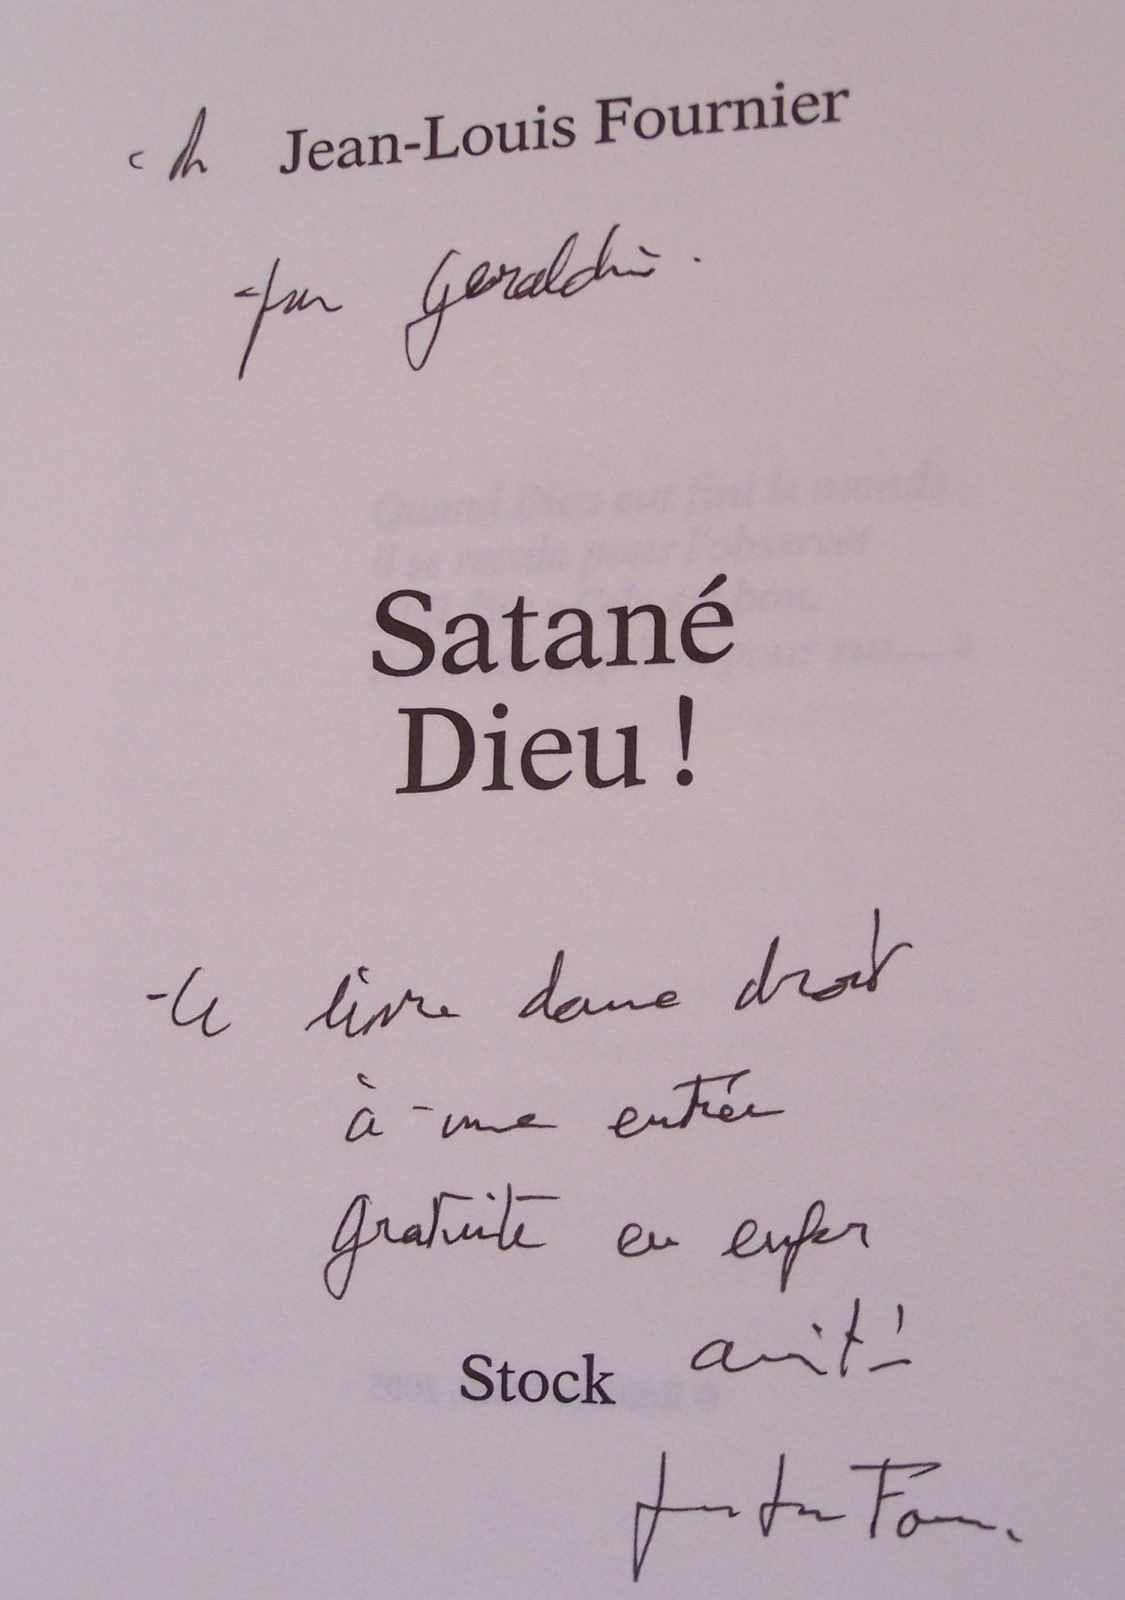 de Jean-Louis Fournier
pour Geraldine.
Satané
Dieu !
Ce livre donne droit
à une entrée
gratuite en enfer
Stock amitié
Jean-Louis Fournier